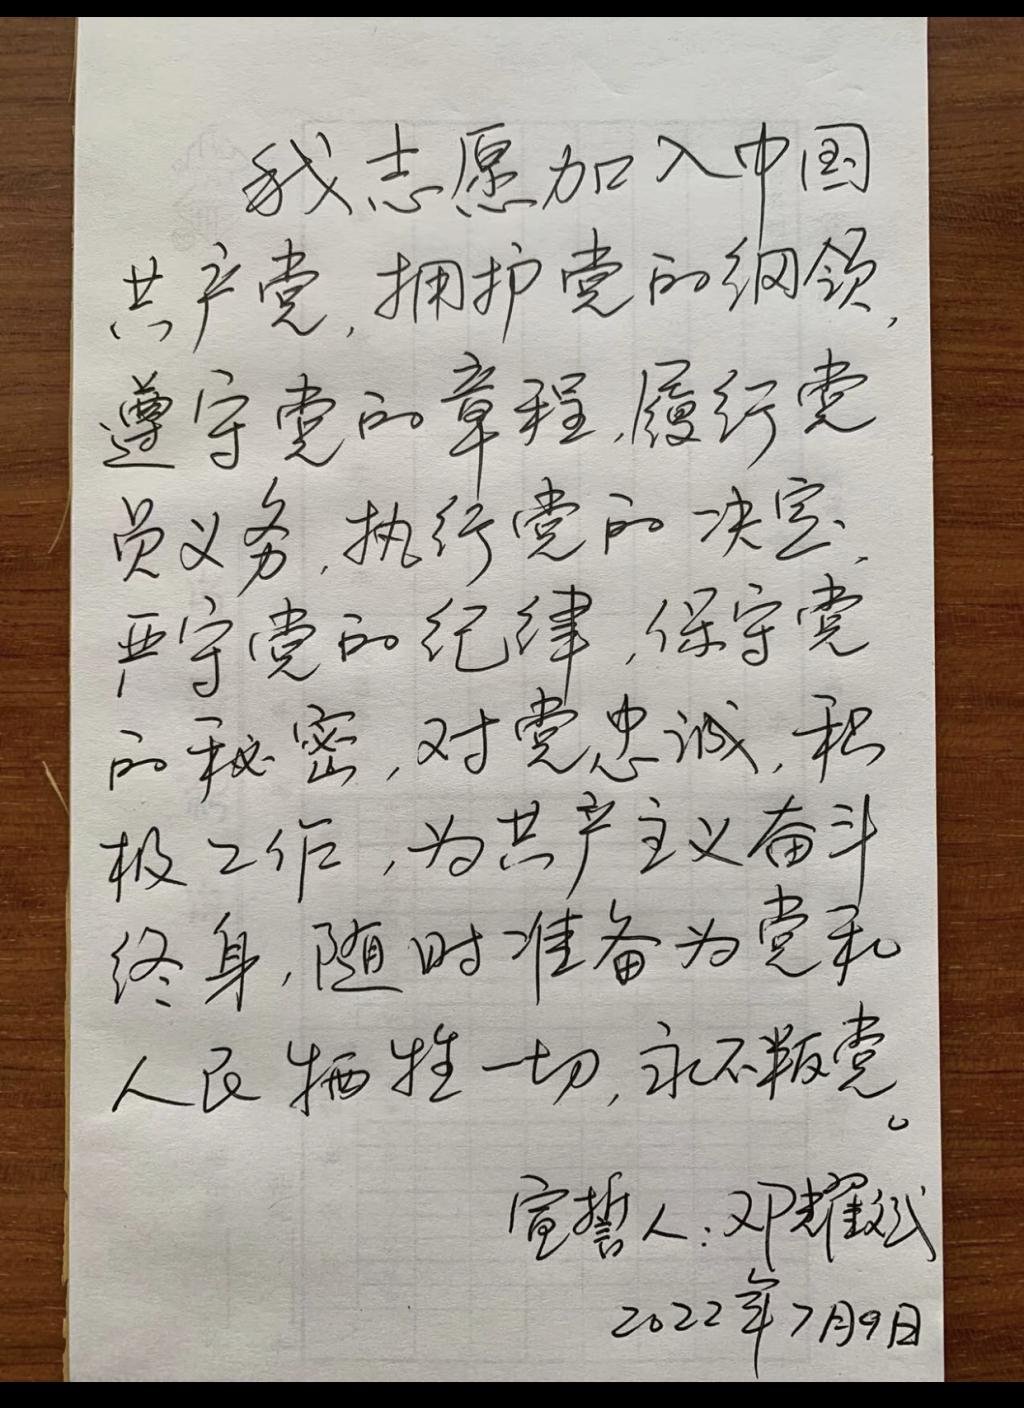 我志愿加入中国
共产党,拥护党的纲领,
遵守党的章程,履行党
员义务,执行党的决定,
严守党的纪律,保守党
的秘密,对党忠诚,积
极工作,为共产主义奋斗
终身,随时准备为党和
人民牺牲一切,永不叛党。
宣誓人:邓耀斌
2022年7月9日